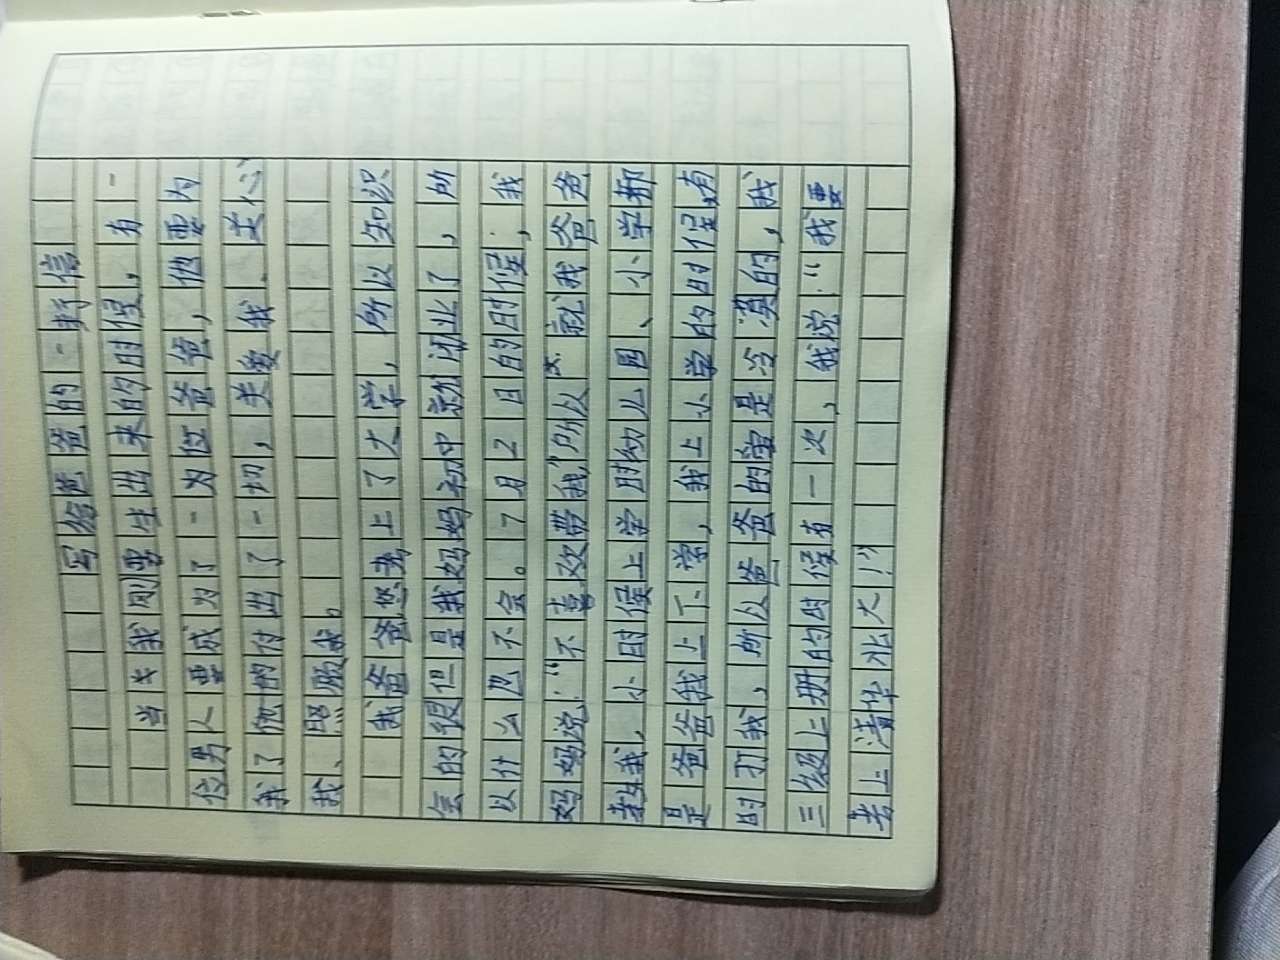 写给爸爸的一封信
当我刚要生出来的时候,有一
位男人要成为了一为位爸爸,他要为
我了他的付出了一切,关爱我、关心
我、照顾我。
我爸爸您考上了大学,所以知识
会的很但是我妈妈初中就闭业了,所
以什么也不会。7月2日的时候,我
妈妈说:“不喜欢带我,”所以就我爸爸
教我,小时候上学时幼儿园、小学都
是爸爸我上下学,我上小学的时候有
时打我,所以爸爸的爱是冷漠的,我
三级上册的时候有一次,我说:“我要
考上清华北大!”